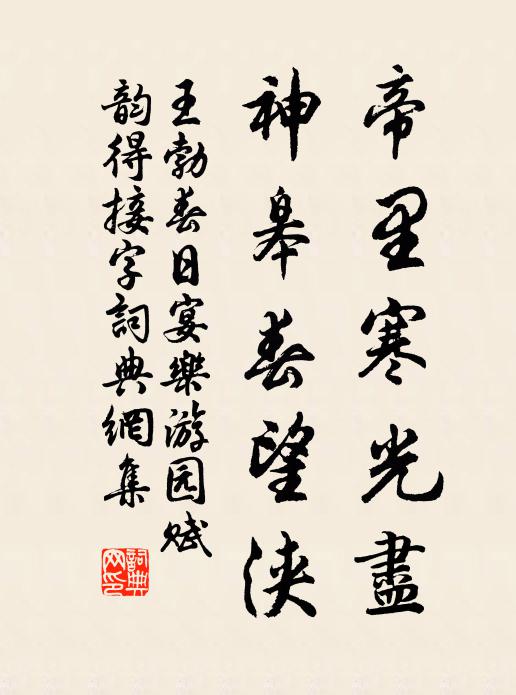 帝里寒光盡
神皋春望浹
王勃春日宴樂游园赋
韵得接字詞典網集
詞典
网印